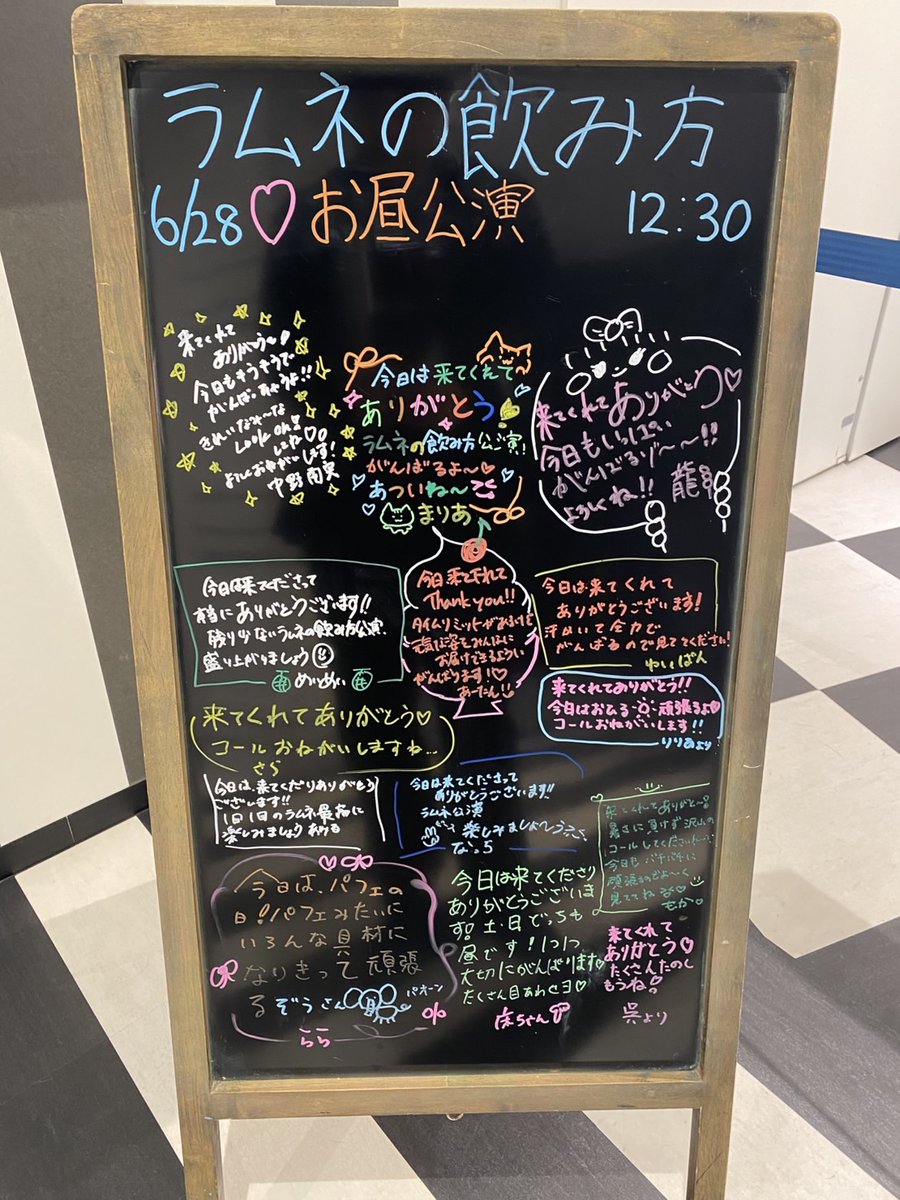 ラムネの飲み方
6/28♡お昼公演 12:30
来てくれて
ありがとう〜!
がんばっちゃうよ!!
Look on!
よろしくおねがいします!
中野南実
今日は来てくれて
ありがとう
ラムネの飲み方公演!
がんばるよ〜♡
あついね〜
まりあ
来てくれてありがとう♡
今日もいっぱい
がんばるゾ〜〜!!
よろしくね!!
今日は来てくださって
本当にありがとうございます!!
残り少ないラムネの飲み方公演、
盛り上がりましょう
めいめい
今日来てくれて
Thank you!!
タイムリミットがあるけど
元気な姿をみんなに
お届けできるように
がんばります!♡
あーたん
今日は来てくれて
ありがとうございます!
汗かいて全力で
がんばるので見ててください!
ゆいぱん
来てくれてありがとう!!
今日はおひる 頑張るよ♡
コールおねがいします!!
りりあより
来てくれてありがとう♡
コールおねがいしますね...
さら
今日は、来てくださりありがとう
ございます!!
1日1日のラムネ最高に
楽しみましょう
今日は来てくださって
ありがとうございます!!
ラムネ公演
楽しみましょ〜う
来てくれてありがと〜
暑さに負けず沢山の
コールしてくださいね
今日もバチバチに
頑張るのでよ〜く
見ててね
もか
今日は、パフェの
日!パフェみたいに
いろんな具材に
なりきって頑張
るぞうさん パオーン
らら
今日は来てくださり
ありがとうございま
す。土・日でっちも
昼です!1つ1つ
大切にがんばります
たくさん目あわせヨ♡
床ちゃん
来てくれて
ありがとう♡
たくさんたのし
もうね!
呉より